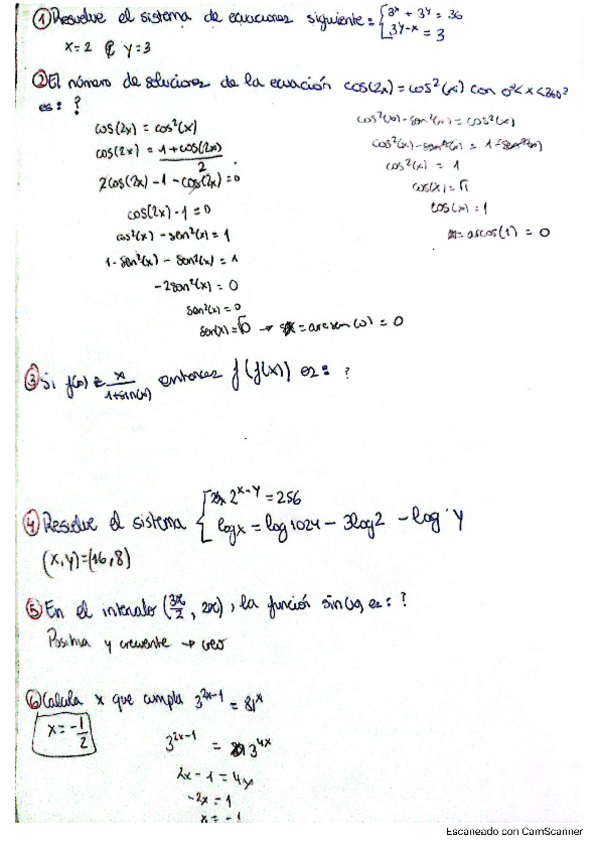 ① Resuelve el sistema de ecuaciones siguiente = { 3^x + 3^y = 36
3^{y-x} = 3
x=2 ∉ y=3
② El número de soluciones de la ecuación cos(2x) = cos²(x) con 0° < x < 360°
es: ?
cos(2x) = cos²(x)
cos(2x) = 1+cos(2x) / 2
2cos(2x) - 1 - cos(2x) = 0
cos(2x) - 1 = 0
cos²(x) - sen²(x) = 1
1 - sen²(x) - sen²(x) = 1
-2sen²(x) = 0
sen²(x) = 0
sen(x) = √0 → x = arcsen(0) = 0
cos²(x) - sen²(x) = cos²(x)
cos²(x) - sen²(x) = 1 - sen²(x)
cos²(x) = 1
cos(x) = √1
cos(x) = 1
x = arcos(1) = 0
③ Si f(x) = x / 1+sin(x) entonces f(f(x)) es: ?
④ Resuelve el sistema { 2^{x-y} = 256
log x = log 1024 - 3log2 - log y
(x,y) = (16,8)
⑤ En el intervalo (3π/2, 2π), la función sin(x), es: ?
Positiva y creciente → creo
⑥ Calcula x que cumpla 3^{2x-1} = 81^x
x = -1/2
3^{2x-1} = 3^{4x}
2x - 1 = 4x
-2x = 1
x = -1
Escaneado con CamScanner